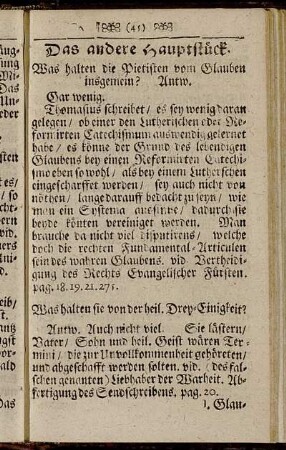 (45)
Das andere Hauptstück.
Was halten die Pietisten vom Glauben
insgemein? Antw.
Gar wenig.
Thomasius schreibet / es sey wenig daran
gelegen / ob einer den Lutherischen oder Re-
formirten Catechismum auswendig gelernet
habe / es könne der Grund des lebendigen
Glaubens bey einen Reformirten Catechi-
smo eben so wohl / als bey einem Lutherschen
eingescharfft werden / sey auch nicht von
nöthen / lange darauff bedacht zu seyn / wie
man ein Systema aussinne / dadurch sie
beyde könten vereiniget werden. Man
brauche da nicht viel disputirens / welche
doch die rechten Fundamental-Articulen
sein des wahren Glaubens. vid. Vertheidi-
gung des Rechts Evangelischer Fürsten.
pag. 18. 19. 21. 275.
Was halten sie von der heil. Drey-Einigkeit?
Antw. Auch nicht viel. Sie lästern /
Vater / Sohn und heil. Geist wären Ter-
mini / die zur Unvollkommenheit gehöreten /
und abgeschafft werden solten. vid. (des fal-
schen genanten) Liebhaber der Warheit. Ab-
fertigung des Sendschreibens. pag. 20.
1. Glau-